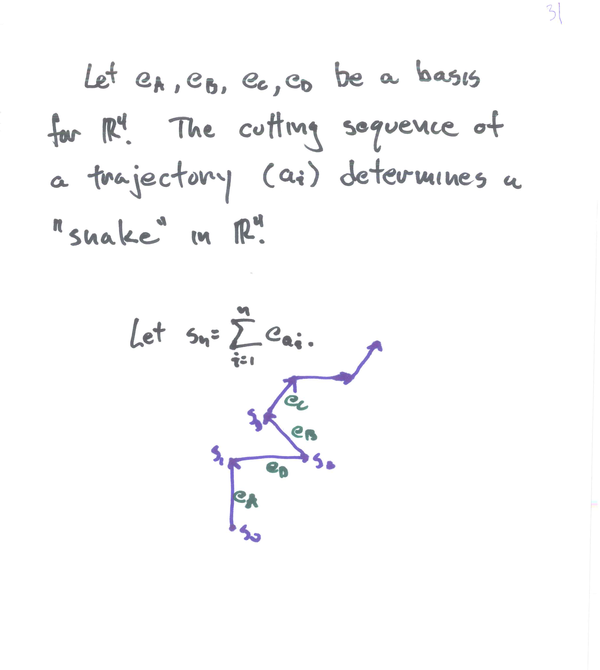 31
Let e_A, e_B, e_C, e_D be a basis
for ℝ⁴. The cutting sequence of
a trajectory (a_i) determines a
"snake" in ℝ⁴.
Let s_n = ∑_{i=1}^{n} e_{a_i}.
e_C
s_3
e_B
s_1
s_2
e_D
e_A
s_0